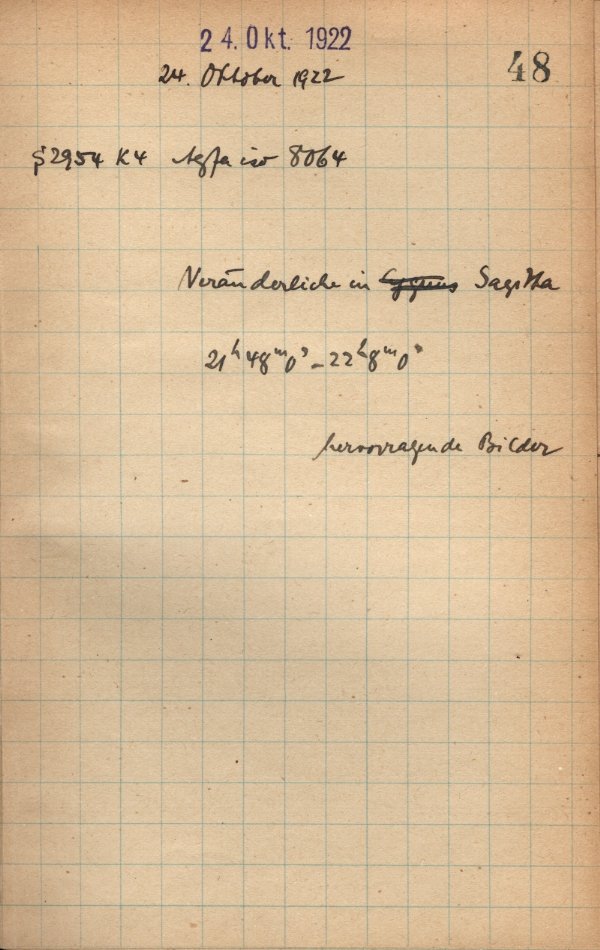 24. Okt. 1922
24. Oktober 1922
48
§2954 K4 Agfa iso 8064
Veränderliche in Cygnus Sagitta
21ʰ48ᵐ0ˢ – 22ʰ8ᵐ0ˢ
hervorragende Bilder